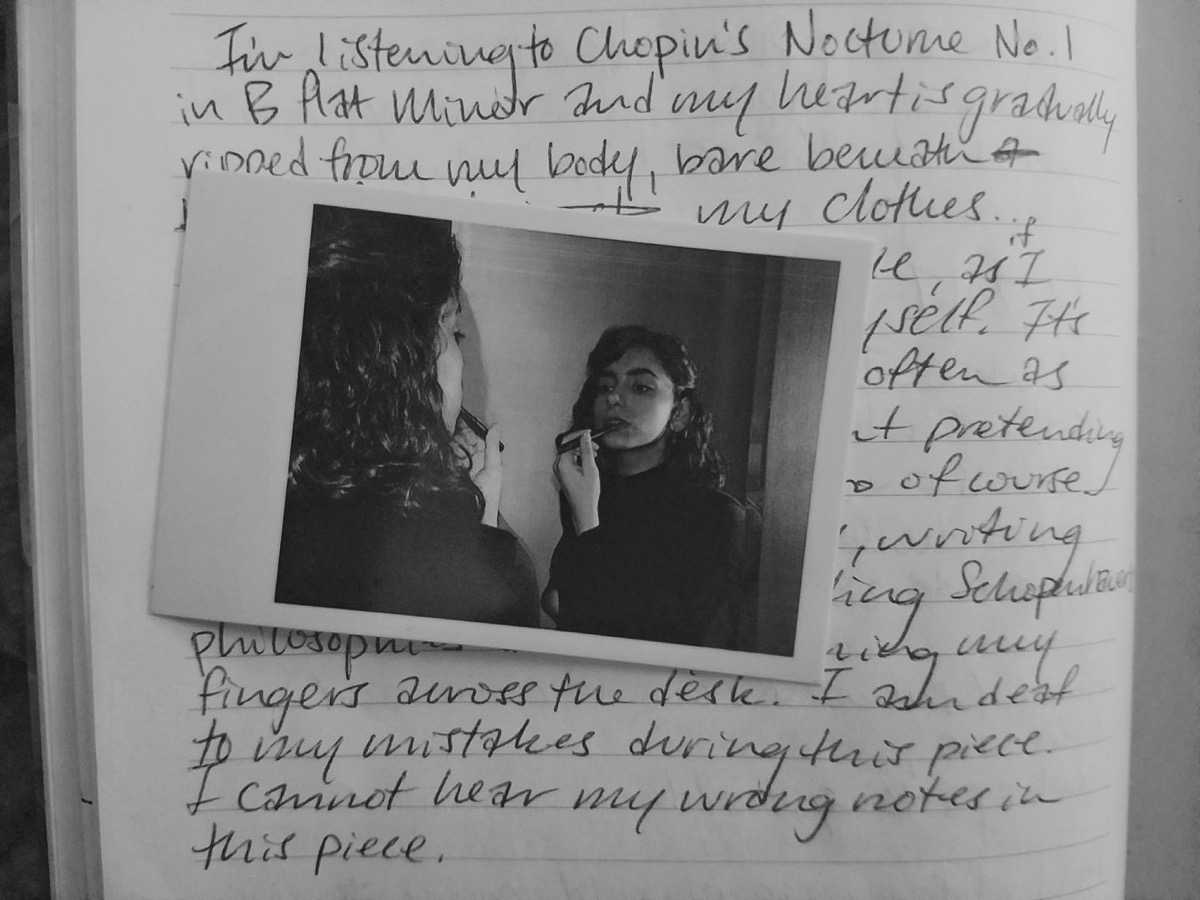 I'm listening to Chopin's Nocturne No. 1
in B flat Minor and my heart is gradually
ripped from my body, bare beneath
my clothes...
as if I
It's
often as
pretending
of course
, writing
Schopenhauer
my
fingers across the desk. I am deaf
to my mistakes during this piece.
I cannot hear my wrong notes in
this piece.